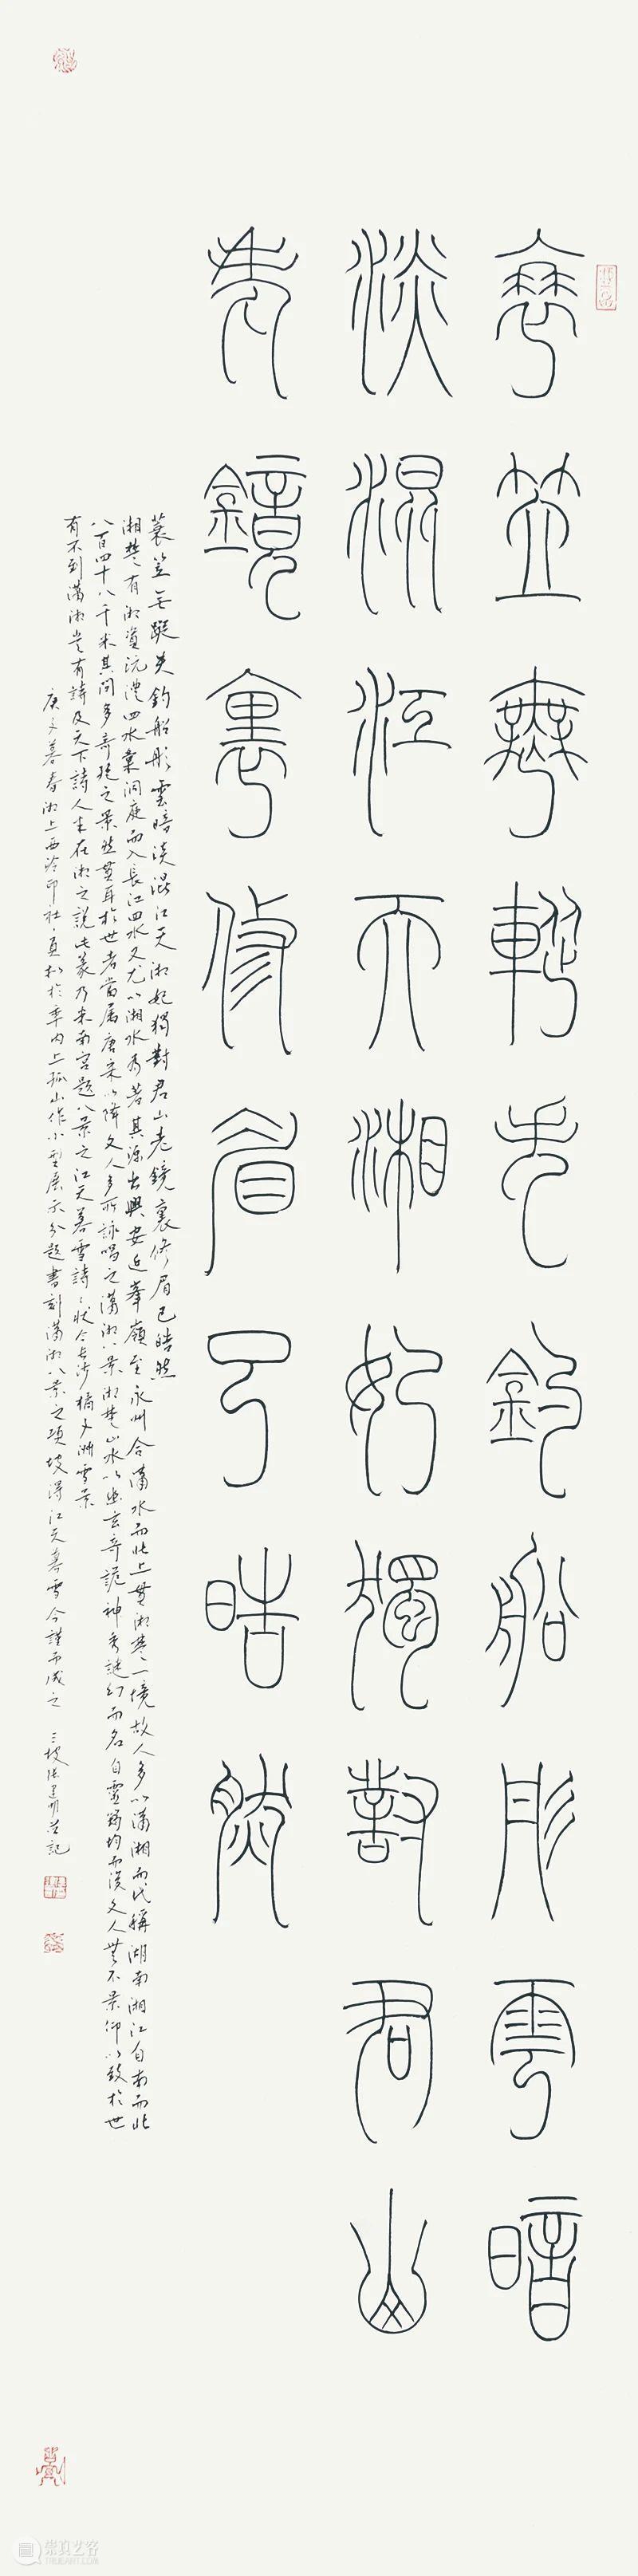 蓑笠無蹤失釣船彤雲暗
淡混江天湘妃獨對君山
老鏡裏修眉已皓然
蓑笠無蹤失釣船彤雲暗淡混江天湘妃獨對君山老鏡裏修眉已皓然
湘楚有湘資沅澧四水彙洞庭而入長江四水又尤以湘水為著其源出興安近峯嶺至永州合瀟水而北上貫湘楚一境故人多以瀟湘而代稱湖南湘江自南而北
八百四十八千米其間多奇瑰之景然貫耳於世者當屬唐宋以降文人多所詠唱之瀟湘八景湘楚山水以幽玄奇詭神秀謎幻而名自靈均而後文人無不景仰以致於世
有不到瀟湘豈有詩及天下詩人半在湘之說此篆乃米南宮題八景之江天暮雪詩狀今長沙橘子洲雪景
庚子暮春湘上西泠印社員於季內上孤山作小型展示分題書刻瀟湘八景之項坡得江天暮雪今謹而成之 三坡張建明並記
崇真艺客
TRUEART.COM